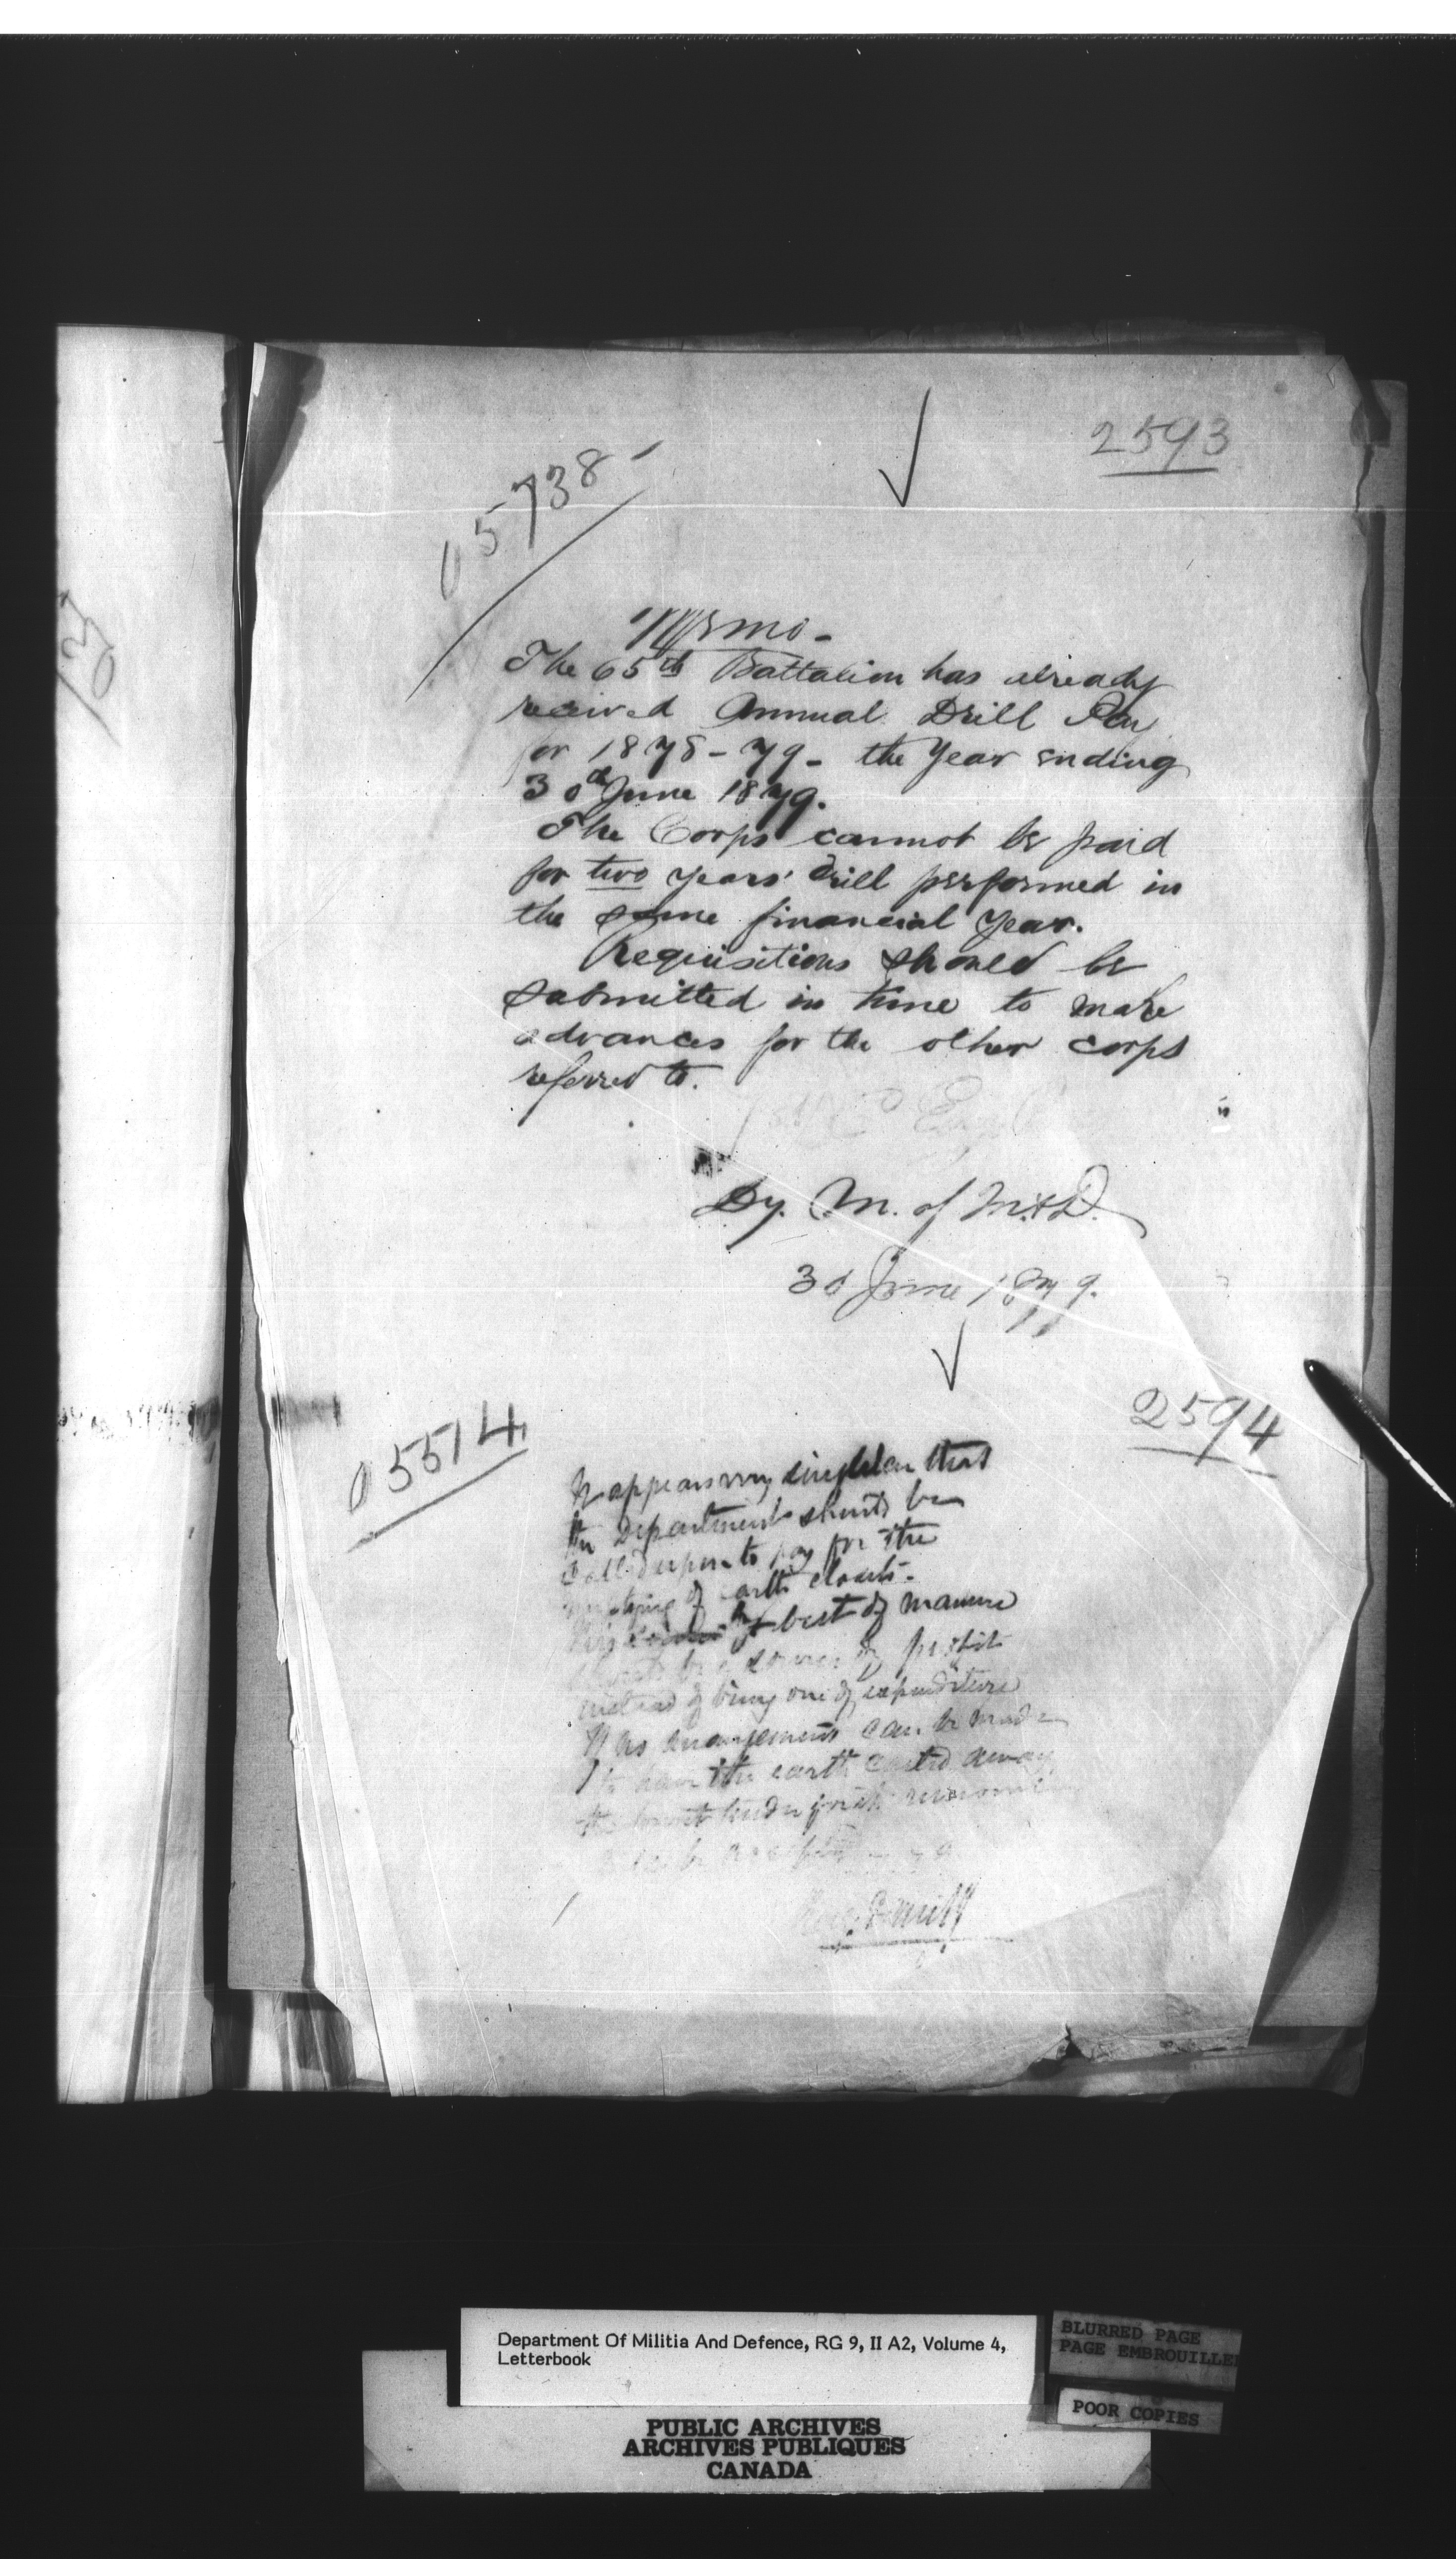 2593
05738
Memo -
The 65th Battalion has already
received Annual Drill Pay
for 1878-79 - the Year ending
30th June 1879.
The Corps cannot be paid
for two years' drill performed in
the same financial Year.
Requisitions should be
submitted in time to make
advances for the other corps
referred to.
Dy. M. of M.&D.
30 June 1879.
2594
05514
It appears very singular that
the Department should be
called upon to pay for the
emptying of earth closets.
This best of manure
profit
instead of being one of expenditure
If no arrangements can be made
to have the earth carted away
the lowest tender
Department Of Militia And Defence, RG 9, II A2, Volume 4,
Letterbook
BLURRED PAGE
PAGE EMBROUILLEE
POOR COPIES
PUBLIC ARCHIVES
ARCHIVES PUBLIQUES
CANADA